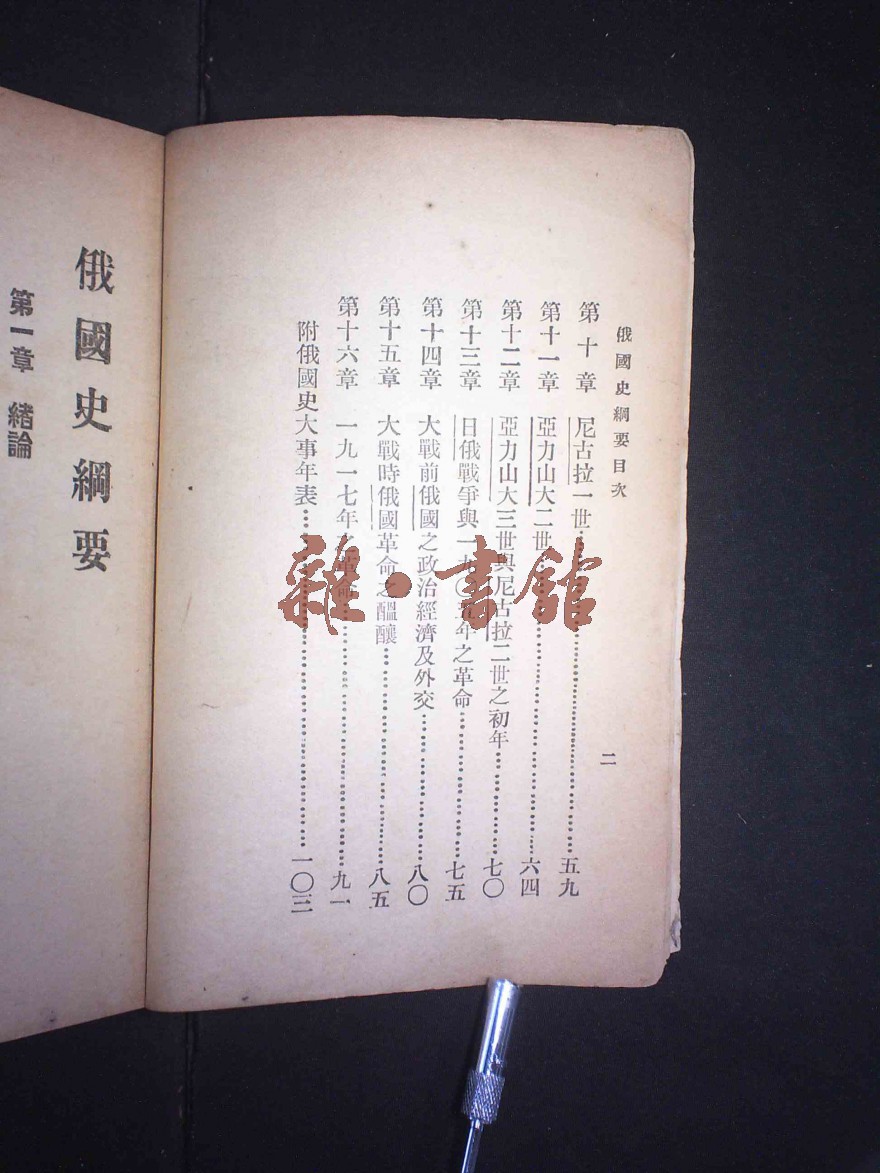 俄國史綱要目次
二
第十章 尼古拉一世……五九
第十一章 亞力山大二世……六四
第十二章 亞力山大三世與尼古拉二世之初年……七〇
第十三章 日俄戰爭與一九〇五年之革命……七五
第十四章 大戰前俄國之政治經濟及外交……八〇
第十五章 大戰時俄國革命之醞釀……八五
第十六章 一九一七年之革命……九一
附俄國史大事年表……一〇三
俄國史綱要
第一章 緒論
雜·書館